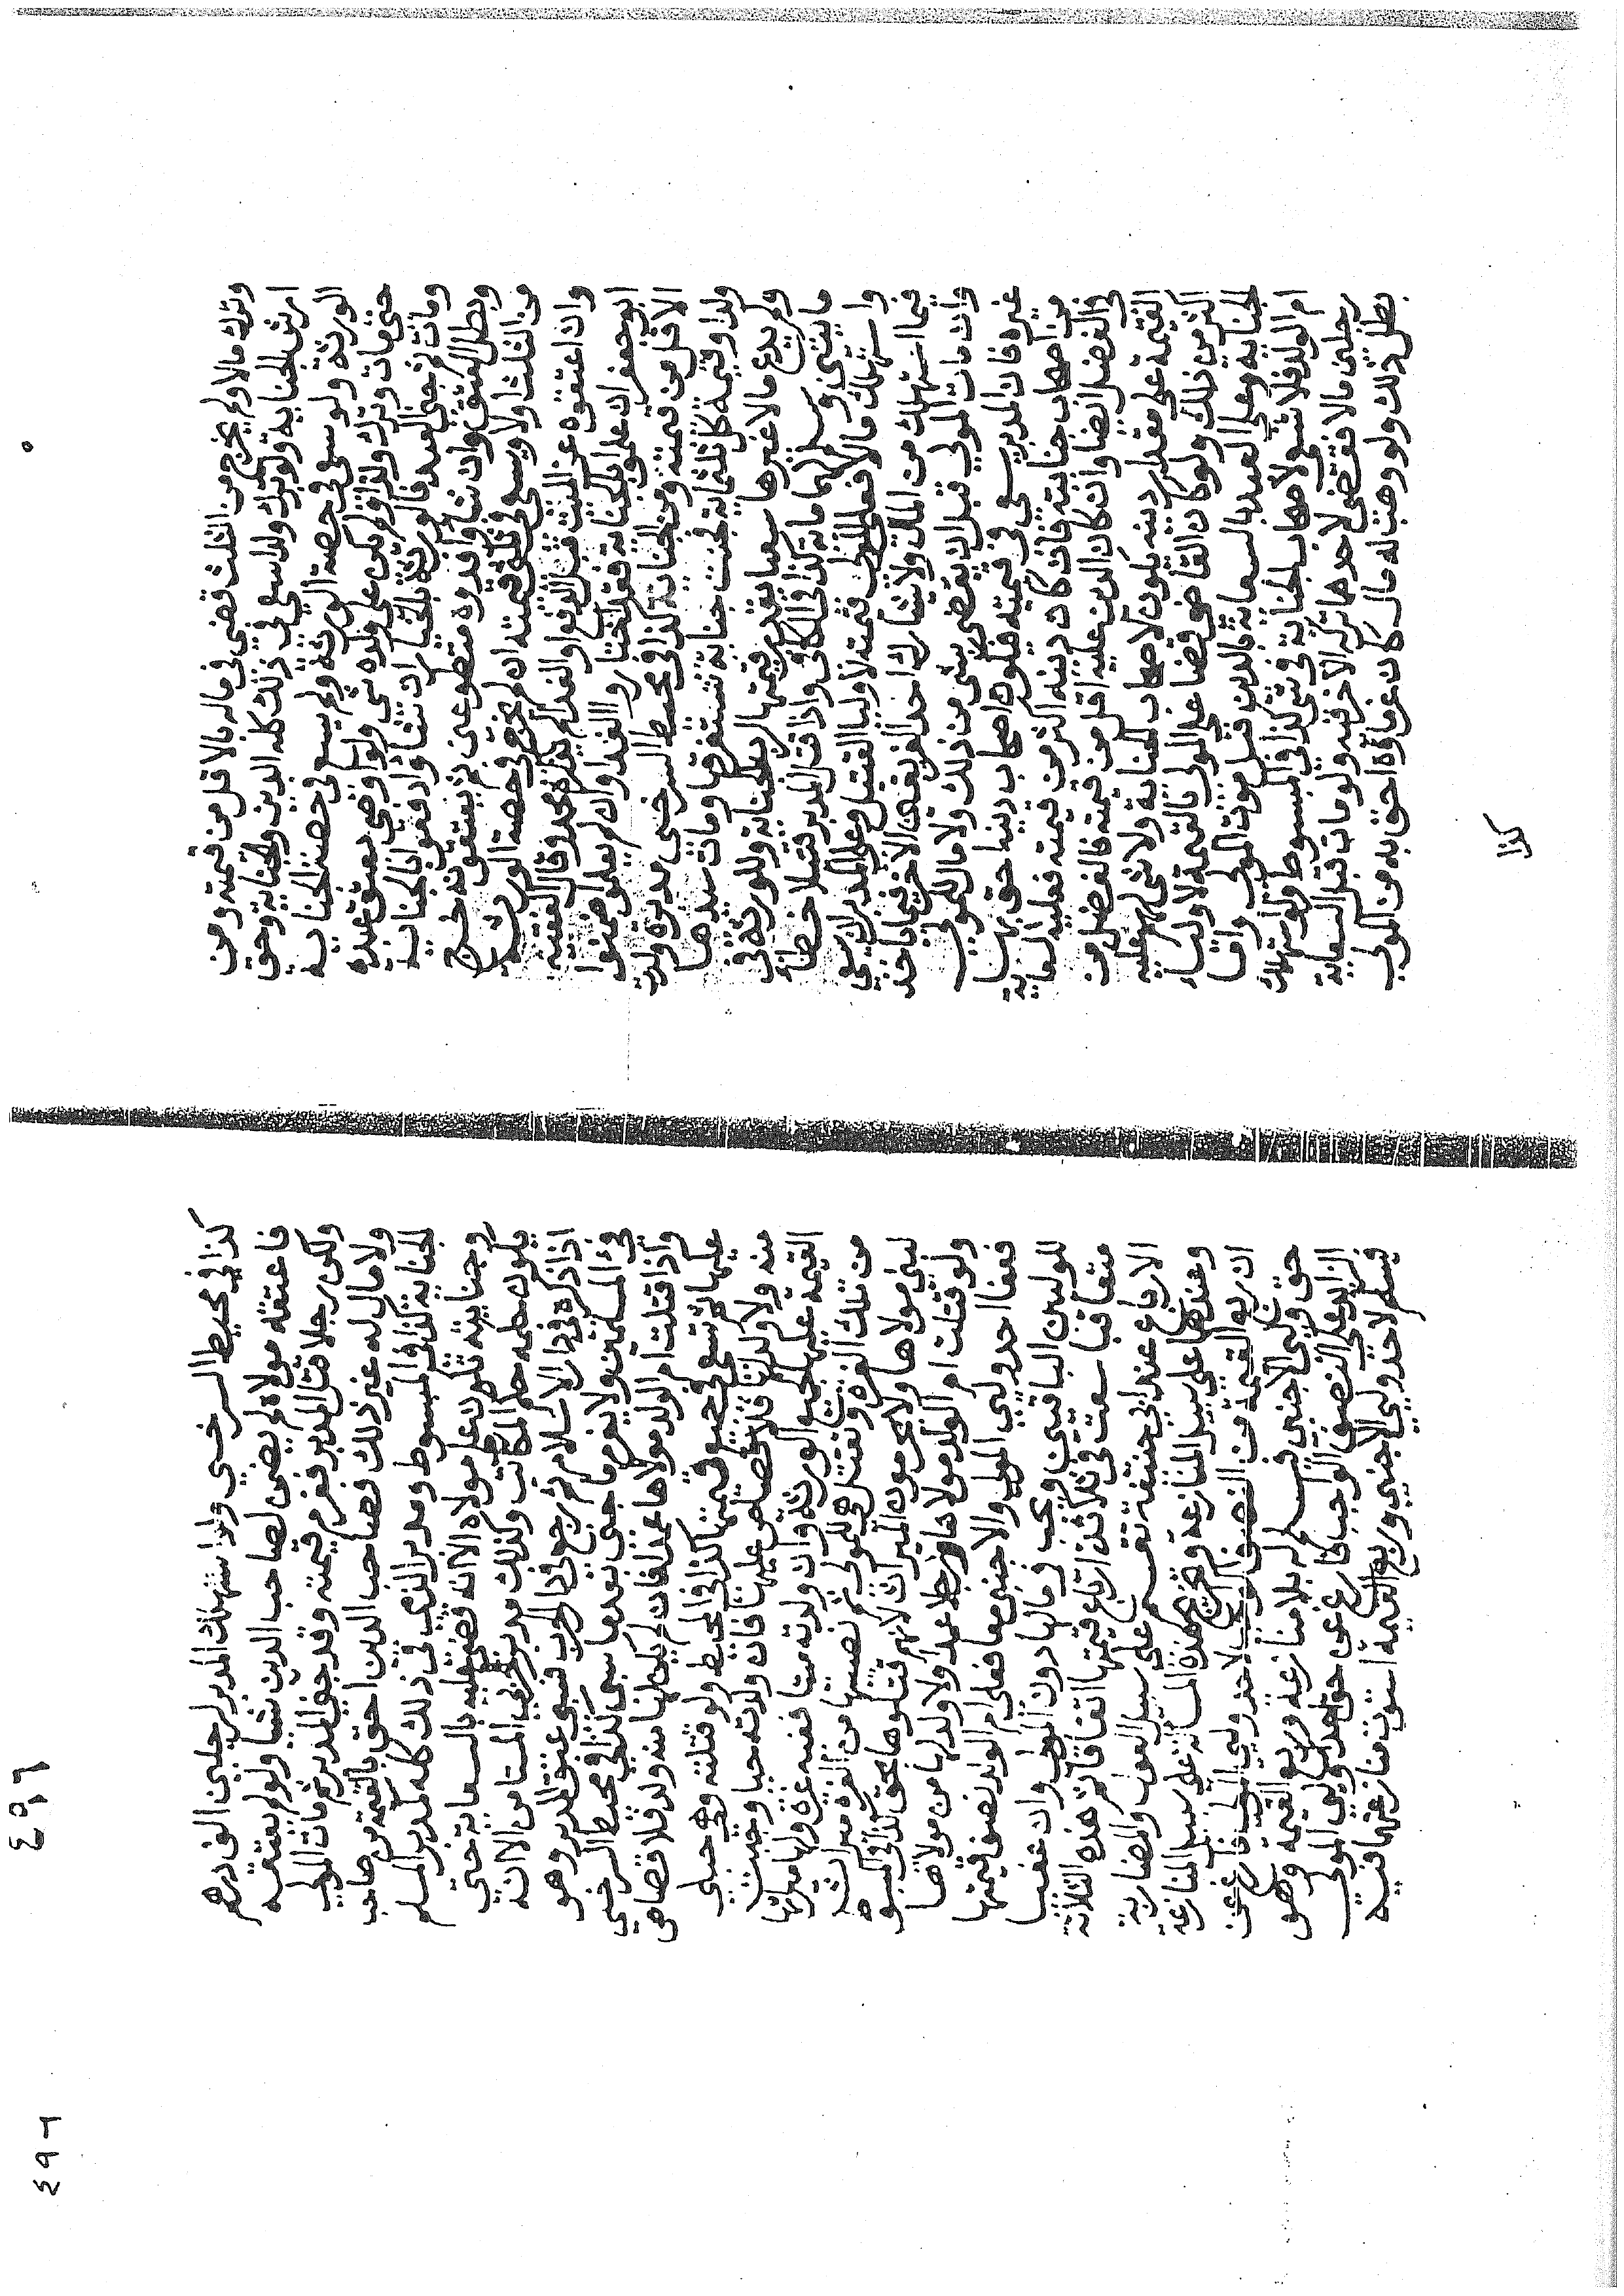 وترك مالا ولم يخرج من الثلث قضي في ماله بالاقل من قيمته ومن
ارش الجناية ولو ترك ولدا سعي في ذلك كله الدين والجناية وحق
الورثة ولو سعى في حصة الورثة ولم يسع في حصة الجناية
حتى مات وترك ولدا لم يكن على ولده شي ولو اوصي بعتق عبده
ومات ثم جنى العبد فالورثة بالخيار ان شاؤا دفعوا بالجناية
وبطل العتق وان شاؤا فدوه متطوعين ثم يعتقونه خرج
من الثلث اولا ويسعى في ثلثي قيمته ان لم يخرج في حصة الورثة
وان اعتقوه عن الميت قبل ان يدفعوا او الفداء محمد وقال الفقيه
ابو جعفر ان علموا بالجناية فقد اختاروا الفدا وان لم يعلموا ضمنوا
الاقل من قيمته ومن الجناية كذا في محيط السرخسي مدبرة ولدت
ولدا وقيمة كل ثلثماية فجنت جناية تستغرقها ومات سيدها
ولم يدع مالا غيرها سعيا بقدر قيمتها رب الجناية وللورثة في
ما بقي وسلم لهما ماية كذا في الكافي واذا قتل المدبر قتيلا خطأ
واستهلك مالا فعلى المولى قيمته لاوليا القتيل وعلى المدبر ان يسعى
فيما استهلك من المال ولا يشارك احد الفريقين الاخر فيما ياخذ
وان مات المولى قبل ان يقضي بشي من ذلك ولا مال للمولى
غيره فان المدبر يسعى في قيمته فيكون اصحاب دينه احق بها
من اصحاب جنايته فان كان دينه اكثر من قيمته فعليه السعاية
في الفضل ايضا وان كان الدين عليه اقل من قيمته فالفضل من
القيمة على مقدار دينه يكون لاصحاب الجناية ولا شي لهم عليه
اكثر من ذلك ولو كان القاضي قضا على المولى بالقيمة لاوليا
الجناية وعلى العبد بالسعاية بالدين قبل موت المولى واما
ام الولد فلا تسعى لاصحاب الجناية في شي كذا في المبسوط ولو استهلك
رجلين مالا فقضي لاحدهما شركه الاخر فيه ولو مات قبل السعاية
بطل ذلك ولو وهب له مال كان غرماؤه احق به من المولى
كذا
٤٩٦
كذا في محيط السرخسي ولو استهلك المدبر لرجلين الف درهم
فاعتقه مولاه لم يضمن لصاحب الدين شيا ولو لم يعتقه
ولكن رجلا قتل المدبر فغرم قيمته وقد جنى المدبر ثم مات المولى
ولا مال له غير ذلك فصاحب الدين احق بالقيمة من صاحب
الجناية كذا في المبسوط ومدبر الذمي في ذلك كله كمدبر المسلم
وجنايته تكون على مولاه الا انه قضي عليه بالسعاية حتى
يكون حكمه حكم المكاتب وكذلك مدبر الحربي المستامن الا انه
اذا دبره في دار الاسلام ثم رجع في دار الحرب فسبي عتق المدبر وهو
فئ المسلمين ولا يغرم ما جنى بعد ما سبي كذا في محيط السرخسي
واذا قتلت ام الولد مولاها عمدا فان لم يكن لها منه ولد فلا قصاص
عليها ثم تسعى في جميع قيمتها كذا في المحيط ولو قتلته وهي حبلى
منه ولا ولد لها فلا قصاص عليها فان ولدته حيا وجبت
القيمة عليها لجميع الورثة وان ولدته ميتا ففيه غرة ولها ميراثها
من تلك الغرة وتقتل هي للمولى ثم نصيبها من الغرة ميراث
لبني مولاها ولا يحرمون الميراث لانهم قتلوها بحق كذا في المبسوط
ولو قتلت ام الولد مولاها ورجلا عمدا ولا ولد لها من مولاها
فعفا احد وليي المولى والاجنبي معا فعلى ام الولد نصف قيمتها
للوليين الباقيين ويجب في مالها دون المولى وان عفيا
متعاقبا سعت في ثلاثة ارباع قيمتها اتفاقا ثم هذه الثلاثة
الارباع عند ابي حنيفة تقسم على سبيل العول والمضاربة
وعندهما على سبيل المنازعة وتخريج هذه المسالة على سبيل المنازعة
ان ربع القيمة من النصف الواجب لاحد وليي المولى فارغ عن
حق وليي الاجنبي فيسلم له بلا منازعة وربع القيمة وهو
الزايد على النصف الواجب فارغ عن حق احد وليي المولى
فيسلم لاحد وليي الاجنبي وربع القيمة استوت منازعتهما فيه
٤٩٦